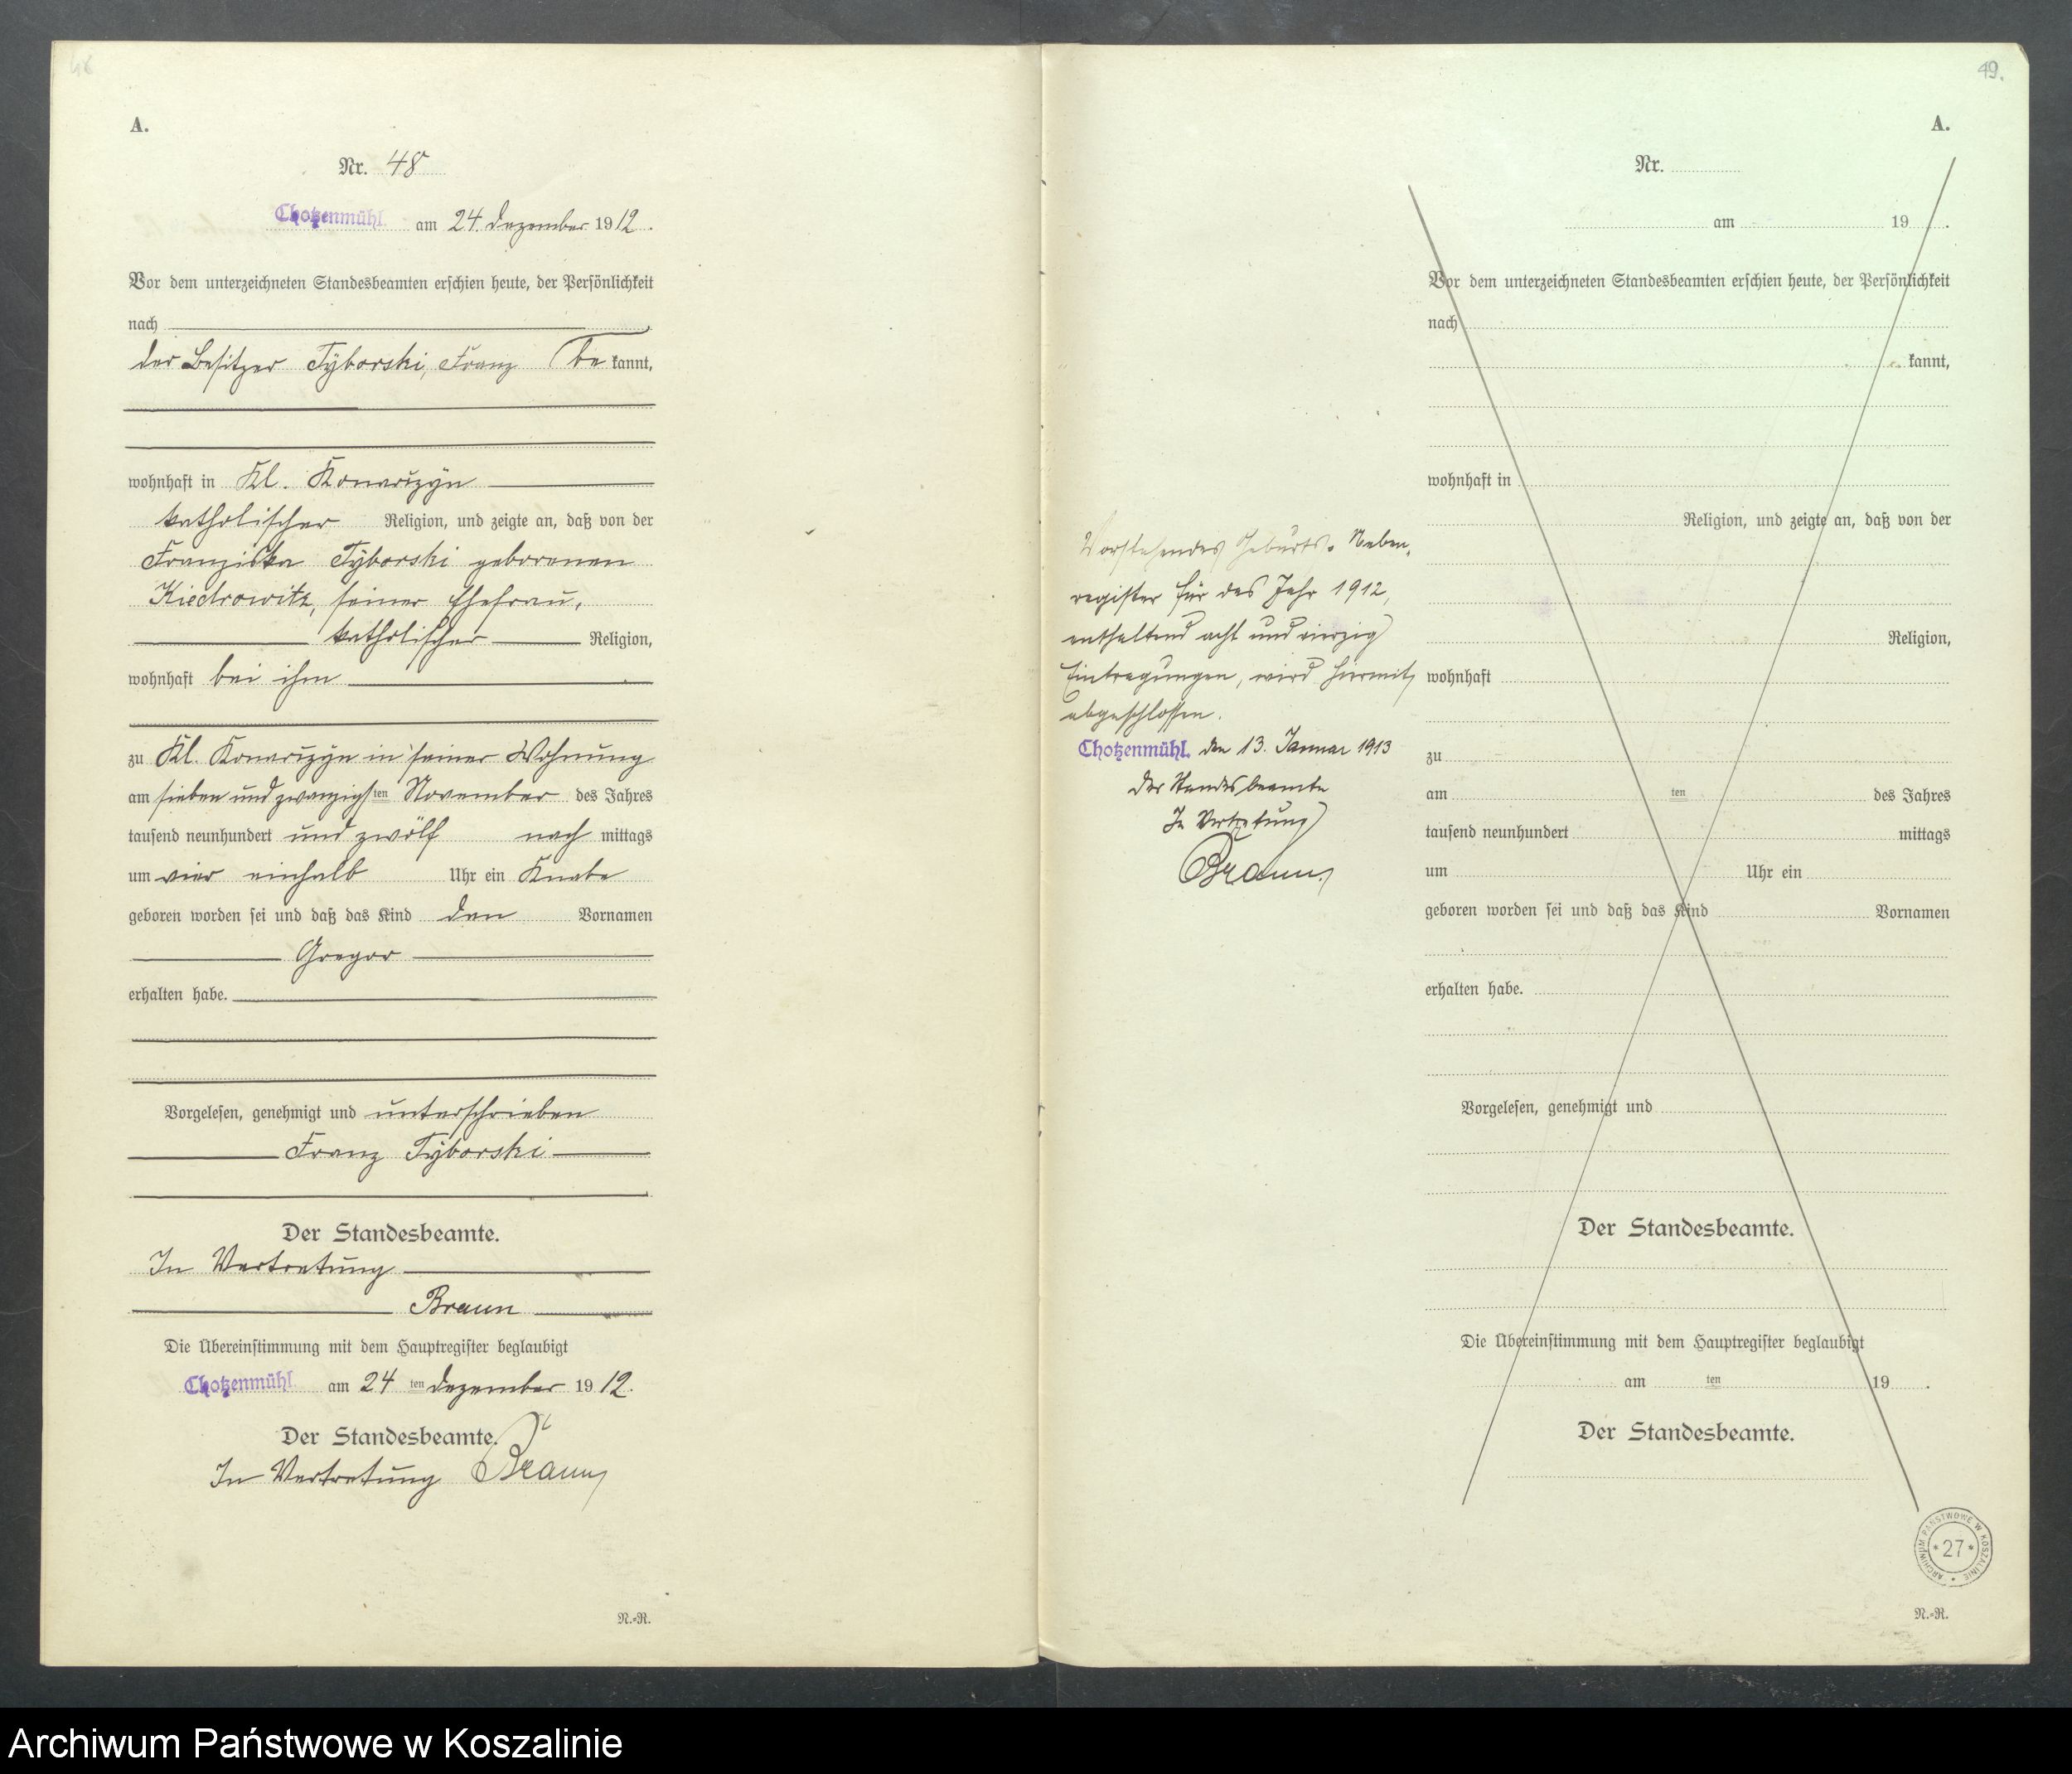 48
A.
Nr. 48
Chotzenmühl am 24. Dezember 1912.
Vor dem unterzeichneten Standesbeamten erschien heute, der Persönlichkeit
nach
der Besitzer Tyborski, Franz be kannt,
wohnhaft in Kl. Konarczyn
katholischer Religion, und zeigte an, daß von der
Franziska Tyborski geborenen
Kiedrowitz, seiner Ehefrau,
katholischer Religion,
wohnhaft bei ihm
zu Kl. Konarczyn in seiner Wohnung
am sieben und zwanzigsten November des Jahres
tausend neunhundert und zwölf nach mittags
um vier einhalb Uhr ein Knabe
geboren worden sei und daß das Kind den Vornamen
Gregor
erhalten habe.
Vorgelesen, genehmigt und unterschrieben
Franz Tyborski
Der Standesbeamte.
In Vertretung
Braun
Die Übereinstimmung mit dem Hauptregister beglaubigt
Chotzenmühl am 24 ten Dezember 1912.
Der Standesbeamte.
In Vertretung Braun
N.=R.
49.
A.
Nr.
am 19 .
Vor dem unterzeichneten Standesbeamten erschien heute, der Persönlichkeit
nach
kannt,
wohnhaft in
Religion, und zeigte an, daß von der
Religion,
wohnhaft
zu
am ten des Jahres
tausend neunhundert mittags
um Uhr ein
geboren worden sei und daß das Kind Vornamen
erhalten habe.
Vorgelesen, genehmigt und
Der Standesbeamte.
Die Übereinstimmung mit dem Hauptregister beglaubigt
am ten 19 .
Der Standesbeamte.
N.=R.
Vorstehendes Geburts-Neben-
register für das Jahr 1912,
enthaltend acht und vierzig
Eintragungen, wird hiermit
abgeschlossen.
Chotzenmühl, den 13. Januar 1913
Der Standesbeamte
In Vertretung
Braun
ARCHIWUM PAŃSTWOWE W KOSZALINIE
* 27 *
Archiwum Państwowe w Koszalinie